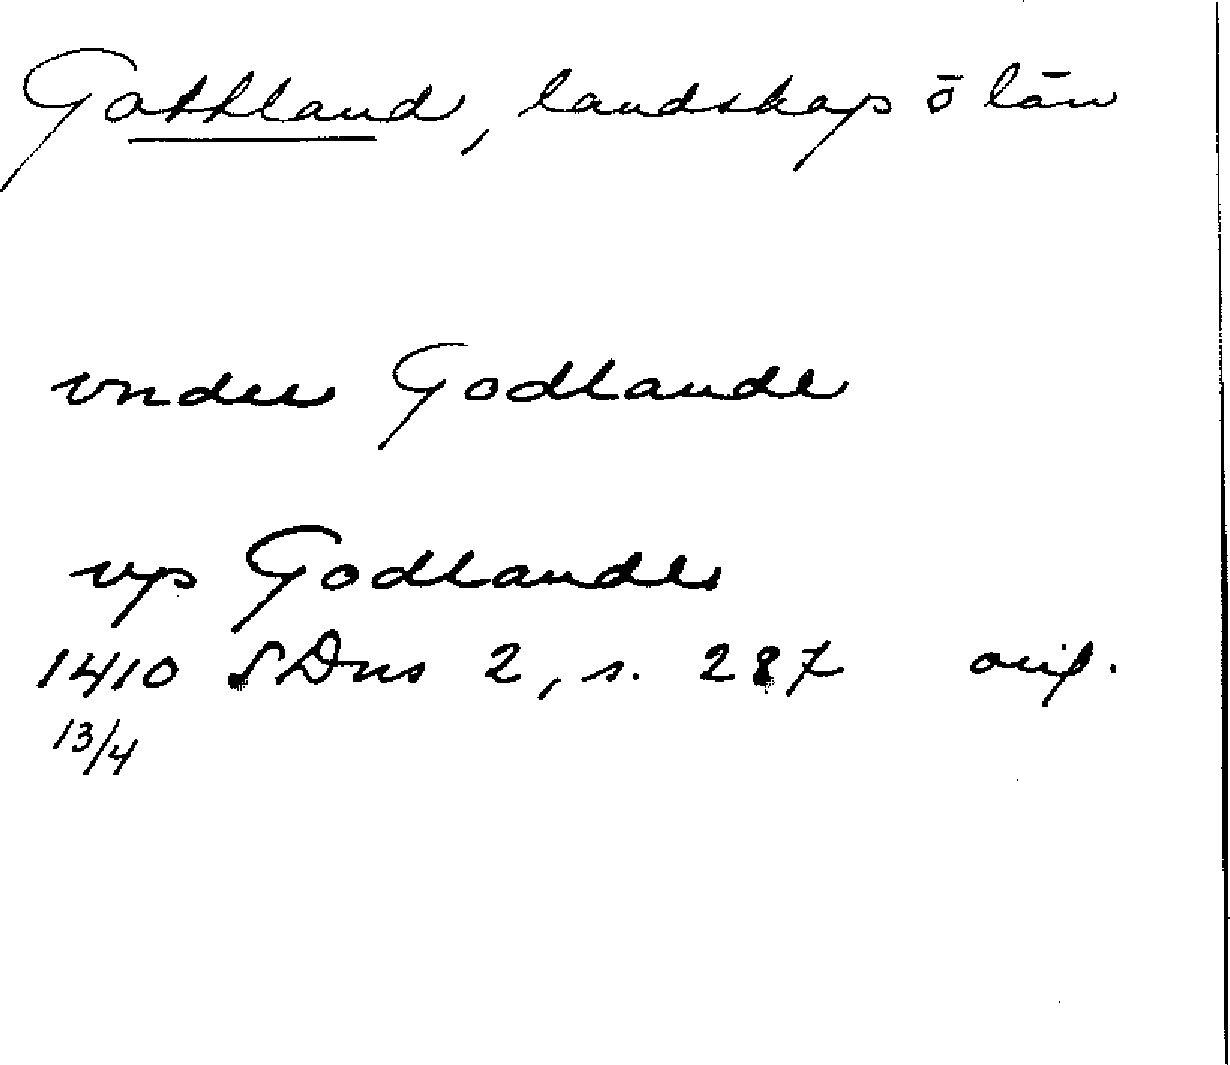 Gotland, landskap o län
vnder Godlande
vp Godlande
1410 SDns 2, s. 287 orig.
13/4